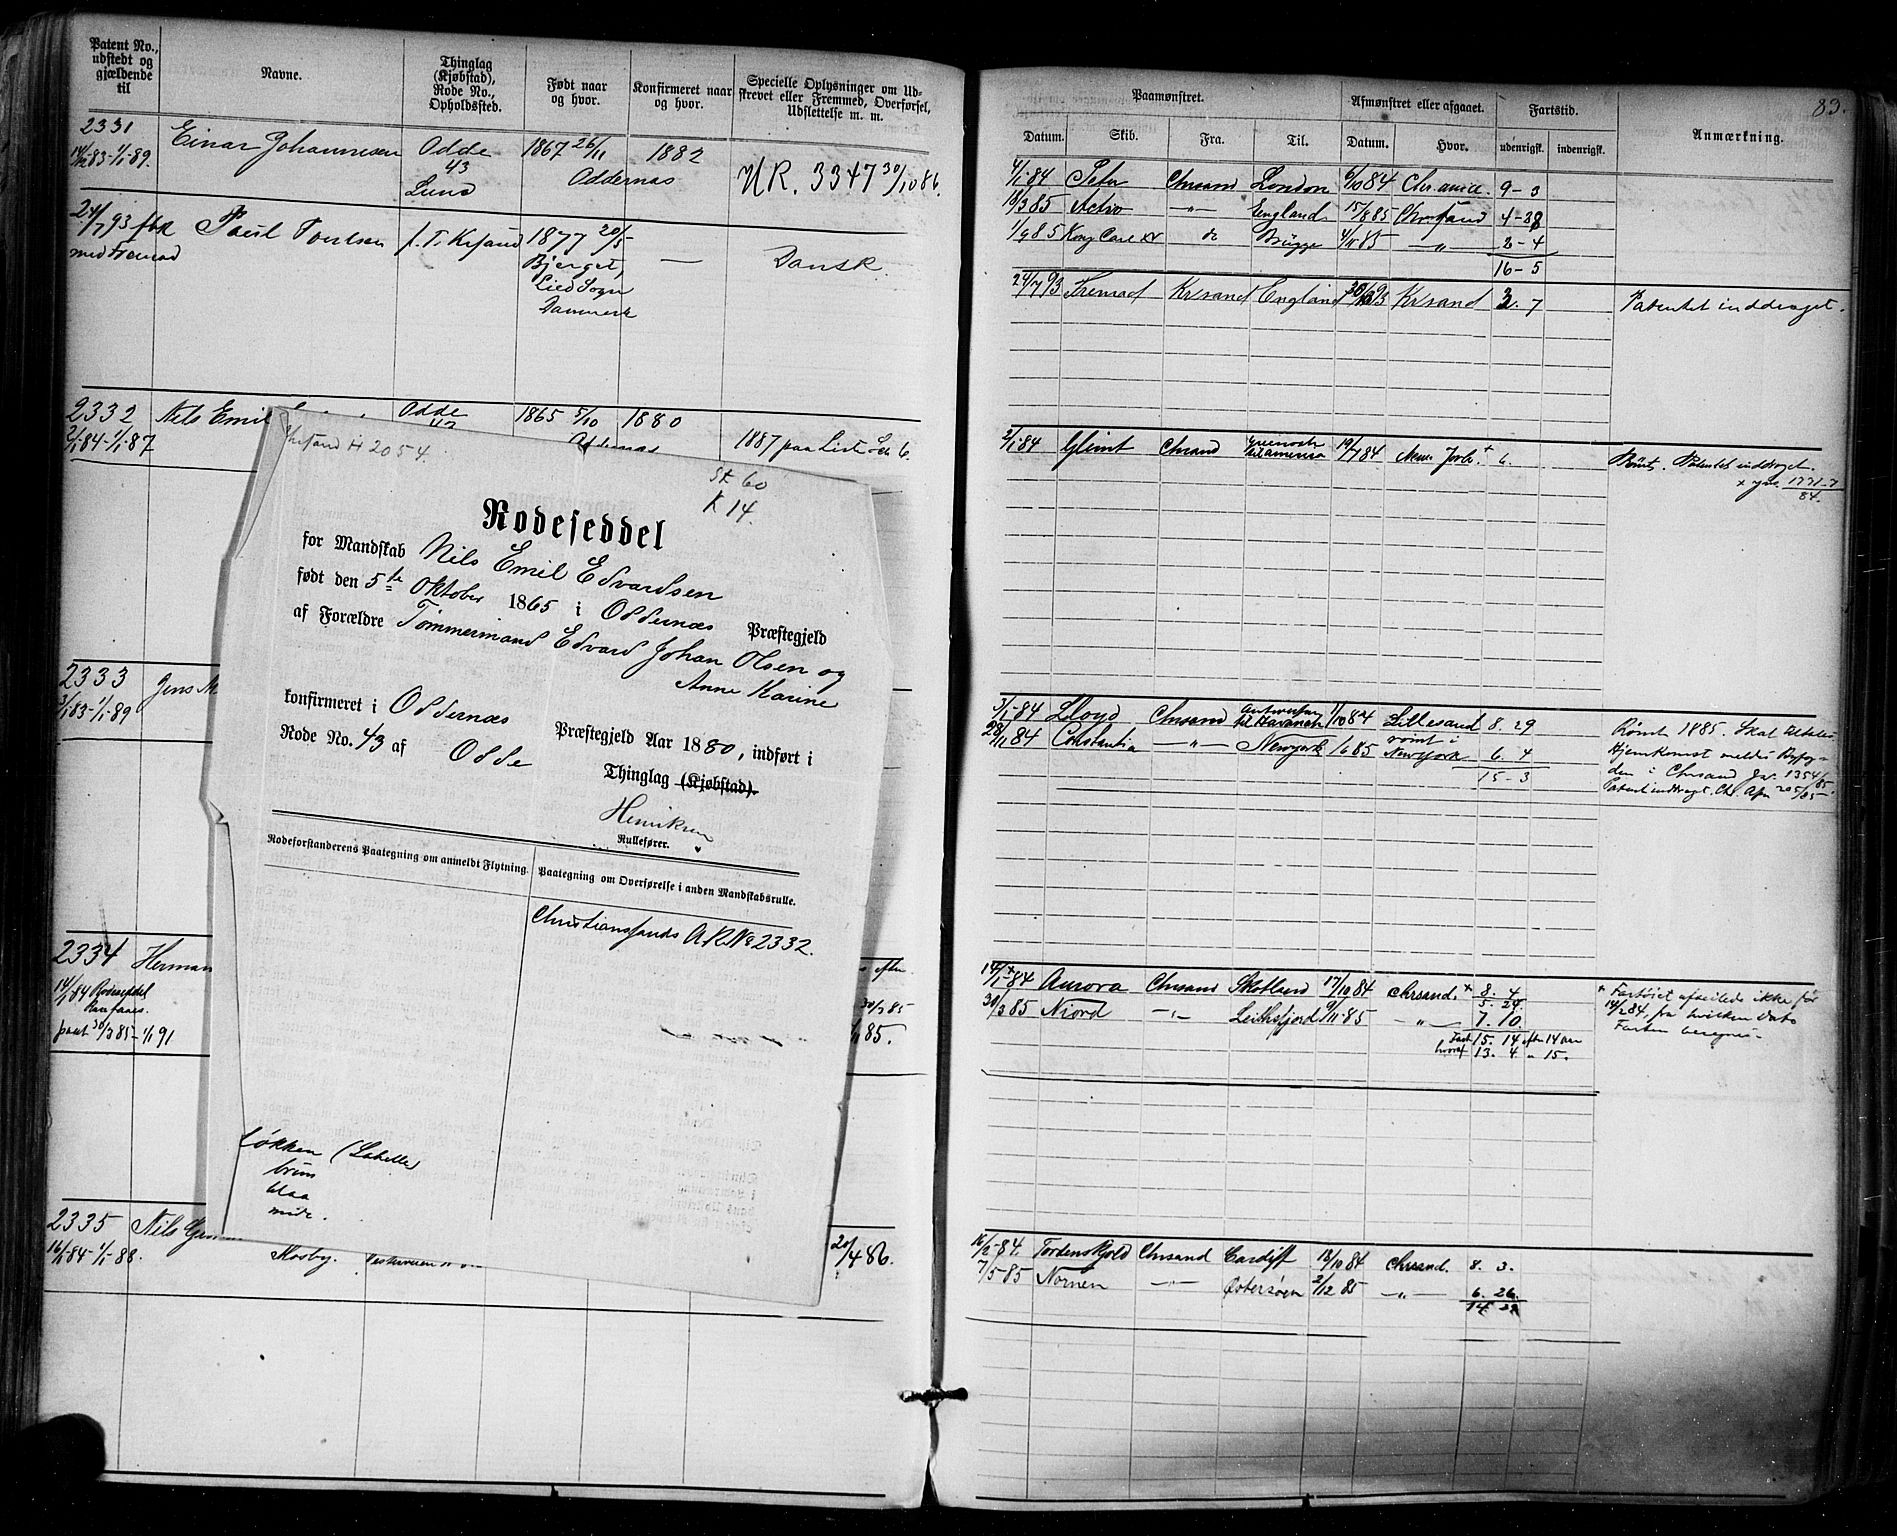 Patent No.,
udstedt og
gjældende
til
Navne.
Thinglag
(Kjøbstad),
Rode No.,
Opholdssted.
Født naar
og hvor.
Konfirmeret naar
og hvor.
Specielle Oplysninger om Ud-
skrevet eller Fremmed, Overførsel,
Udslettelse m. m.
2331
14/12 83-1/1-89.
Einar Johannesen
Odde
43
Lund
1867 26/11
Oddernæs
1882
U.R. 3347 30/10 86.
24/7 93 fik
med Fremad
Paul Poulsen
f. T. Krsand
1877 20/5
Bjerget,
Lied Sogn
Danmark
—
Dansk.
2332
2/1-84-1/1-87
Nils Emil
Odde
1865 5/10
Oddernæs
1880
1887 paa Liste Lit. 6.
2333
3/1-83-1/1-89
Jens
2334
14/1 84 Rodeseddel
patt 30/3 85-1/1 91
Herman
30/3 85
85.
2335
16/1-84-1/1-88.
Nils
Mosby.
20/4 86.
Chrsand H 2054.
St 60
K 14.
Rodeseddel
for Mandskab Nils Emil Edvardsen
født den 5te Oktober 1865 i Oddernæs Præstegjeld
af Forældre Tømmermand Edvard Johan Olsen og
Anne Karine
konfirmeret i Oddernæs Præstegjeld Aar 1880, indført i
Rode No. 43 af Odde Thinglag (Kjøbstad).
Henriksen
Rullefører.
Rodeforstanderens Paategning om anmeldt Flytning.
Paategning om Overførelse i anden Mandskabsrulle.
Christianssands A.R. No 2332.
Løkken (Labelle)
brun
blaa
midr.
83.
Paamønstret.
Afmønstret eller afgaaet.
Fartstid.
Anmærkning.
Datum. Skib. Fra. Til. Datum. Hvor. udenrigsk. indenrigsk.
4/1-84 Peter Chrsand London 6/10 84 9-3
18/3 85 Activ -"- England 15/8 85 Chrsand 4-28
1/9 85 Kong Carl XV do Brügge 4/11 85 -"- 2-4
16-5
24/7 93 Fremad Krsand England 30/10 93 Krsand 3. 7 Patentet inddraget.
2/1-84 Glimt Chrsand Greenock til Amerika 19/7 84 New York + 6. Rømt. Patentet inddraget.
x Jnl. 1771-7
84.
3/1-84 Lloyd Chrsand Antwerpen til Havanah 11/10 84 Lillesand 8. 29 Rømt 1885. Skal ved
29/11 84 Constantia -"- Newyork 1/6 85 rømt i Newyork 6. 4 Hjemkomst meldes Byfog-
15-3 den i Chrsand Jnr. 1354/85.
Patent inddragt. Chr. Afn 20 5/85
14/1-84 + Aurora Chrsand Skotland 17/10 84 Chrsand. + 8. 4 + Fartøiet afseilede ikke før
5. 24 14/2 84, fra hvilken Dato
30/3 85 Niord -"- Leithsfjord 9/11 85 -"- 7. 10 Farten beregnes.
15. 14 efter 14 Aar
hvoraf 13. 4 " 15.
16/2-84. Tordenskjold Chrsand Cardiff 18/10 84 Chrsand. 8. 3.
7/5-85 Nornen -"- Østersøen 2/12 85 -"- 6. 26
14. 29